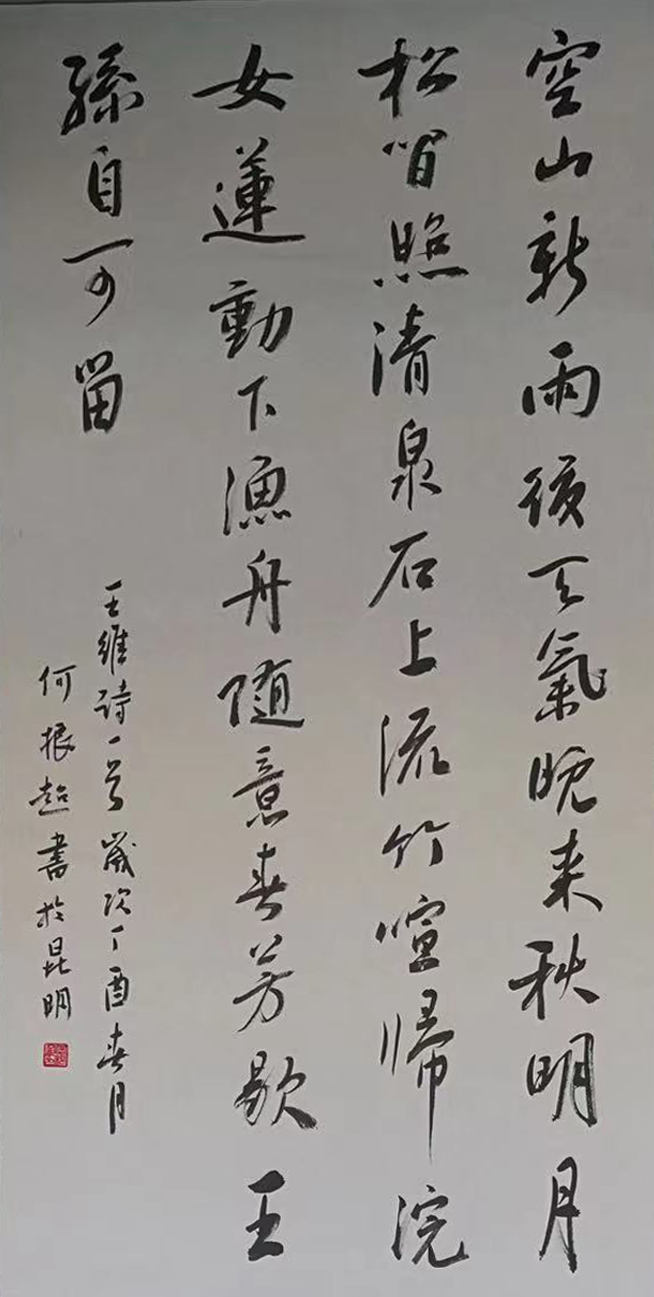 空山新雨後天氣晚来秋明月
松間照清泉石上流竹喧歸浣
女蓮動下漁舟随意春芳歇王
孫自可留
王維詩一首歲次丁酉春月
何振超書於昆明